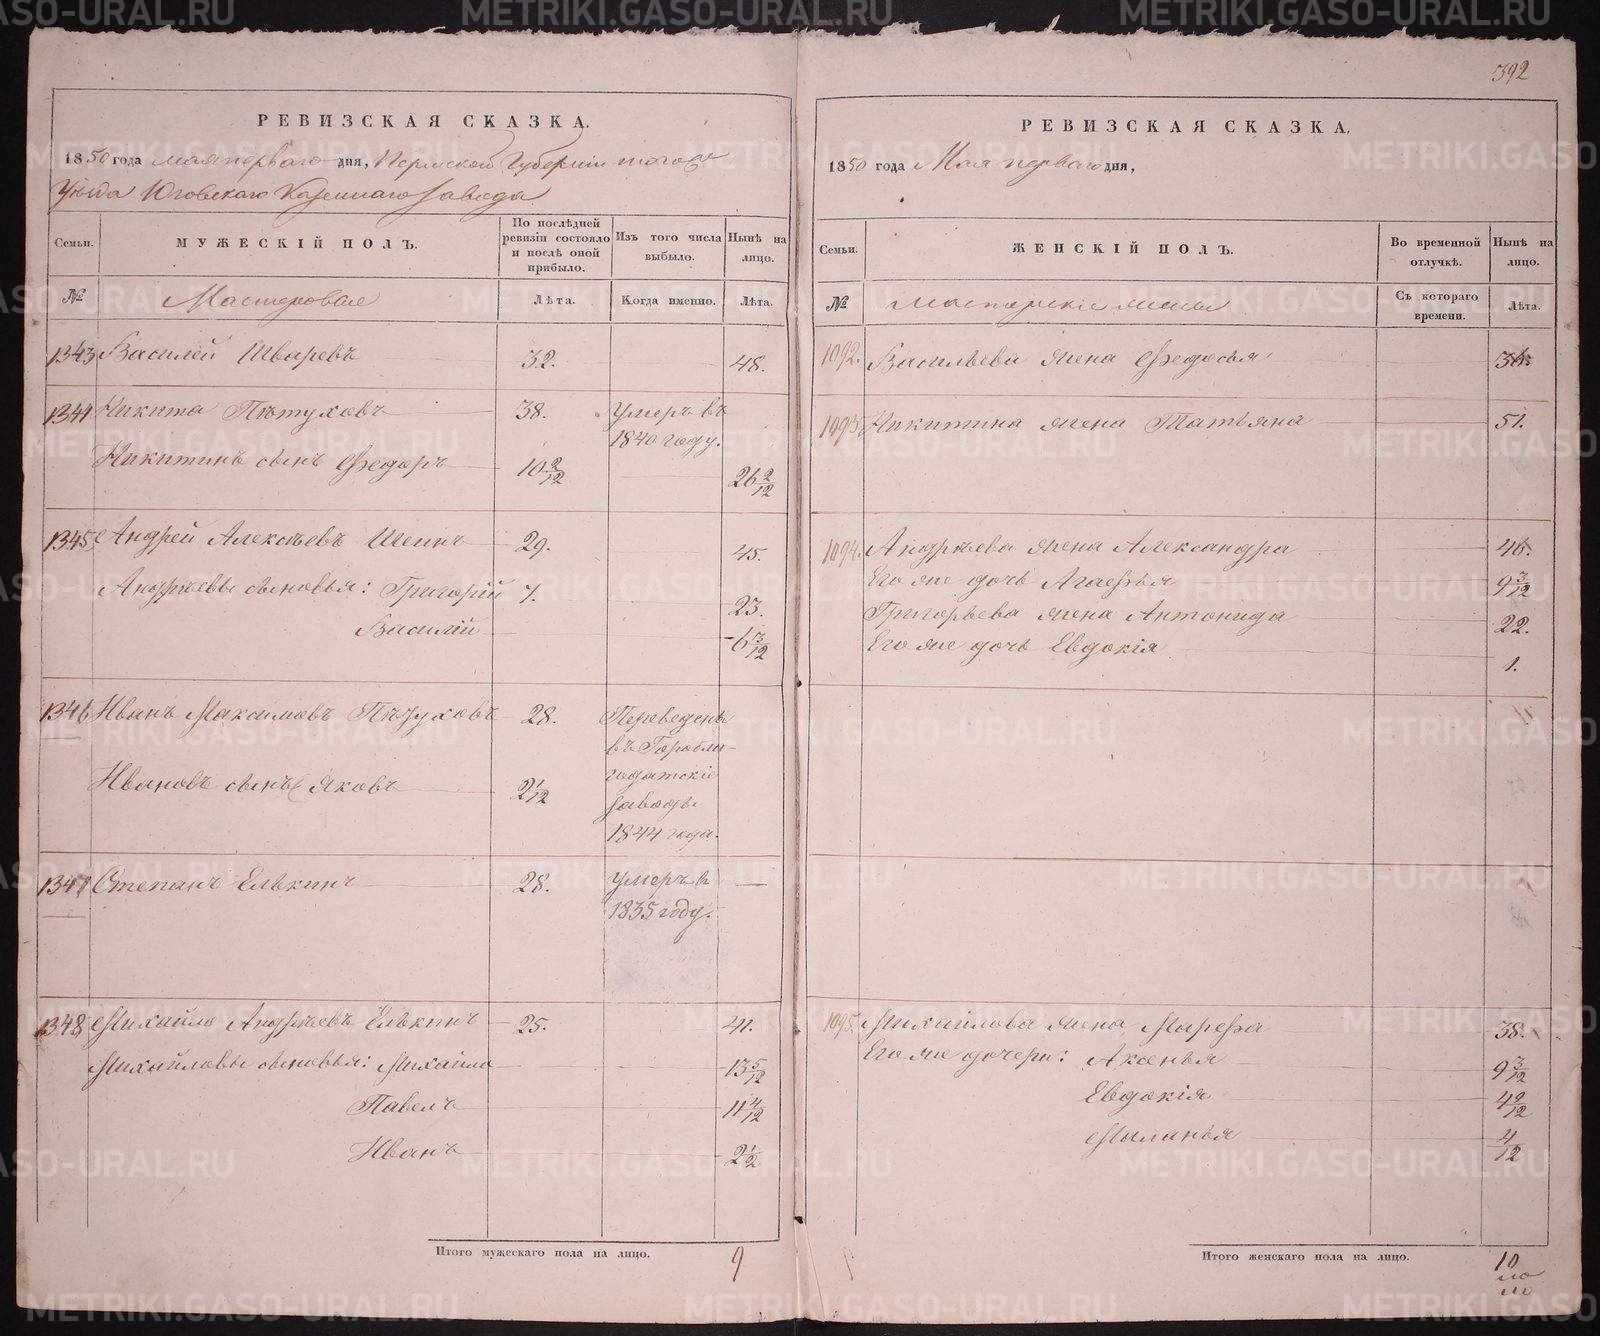 392
РЕВИЗСКАЯ СКАЗКА.
1850 года мая перваго дня, Пермской Губернии тогоже
Уѣзда Юговскаго Казеннаго завода
Семьи.
МУЖЕСКІЙ ПОЛЪ.
По послѣдней ревизіи состояло и послѣ оной прибыло.
Изъ того числа выбыло.
Нынѣ на лицо.
№
Мастеровые
Лѣта.
Когда именно.
Лѣта.
1343 Василей Швыревъ 32. 48.
1344 Никита Пѣтуховъ 38. Умеръ въ
1840 году.
Никитинъ сынъ Ѳедоръ 10 2/12 26 2/12
1345 Андрей Алексѣевъ Шеинъ 29. 45.
Андрѣевы сыновья: Григорій 7. 23.
Василій 6 3/12
1346 Иванъ Максимовъ Пѣтуховъ 28. Переведены
въ Гороблa-
годатскіе
Ивановъ сынъ Яковъ 2 1/2
заводы
1844 года.
1347 Степанъ Елькинъ 28. умеръ в
1835 году.
1348 Михайло Андрѣевъ Елькинъ 25. 41.
Михайловы сыновья: Михайло 13 5/12
Павелъ 11 4/12
Иванъ 2 1/2
Итого мужескаго пола на лицо. 9
РЕВИЗСКАЯ СКАЗКА,
1850 года Мая перваго дня,
Семьи.
ЖЕНСКІЙ ПОЛЪ.
Во временной отлучкѣ.
Нынѣ на лицо.
№
Мастерскіе жены
Съ котораго времени.
Лѣта.
1092. Васильева жена Ѳедосья 36.
1093 Никитина жена Татьяна 51.
1094. Андрѣева жена Александра 46.
Его же дочь Агаѳья 9 3/12
Григорьева жена Антонида 22.
Его же дочь Евдокія 1.
1095. Михайлова жена Марѳа 38.
Его же дочери: Аксенья 9 3/12
Евдокія 4 2/12
Маланья 4/12
Итого женскаго пола на лицо. 10
METRIKI.GASO-URAL.RU